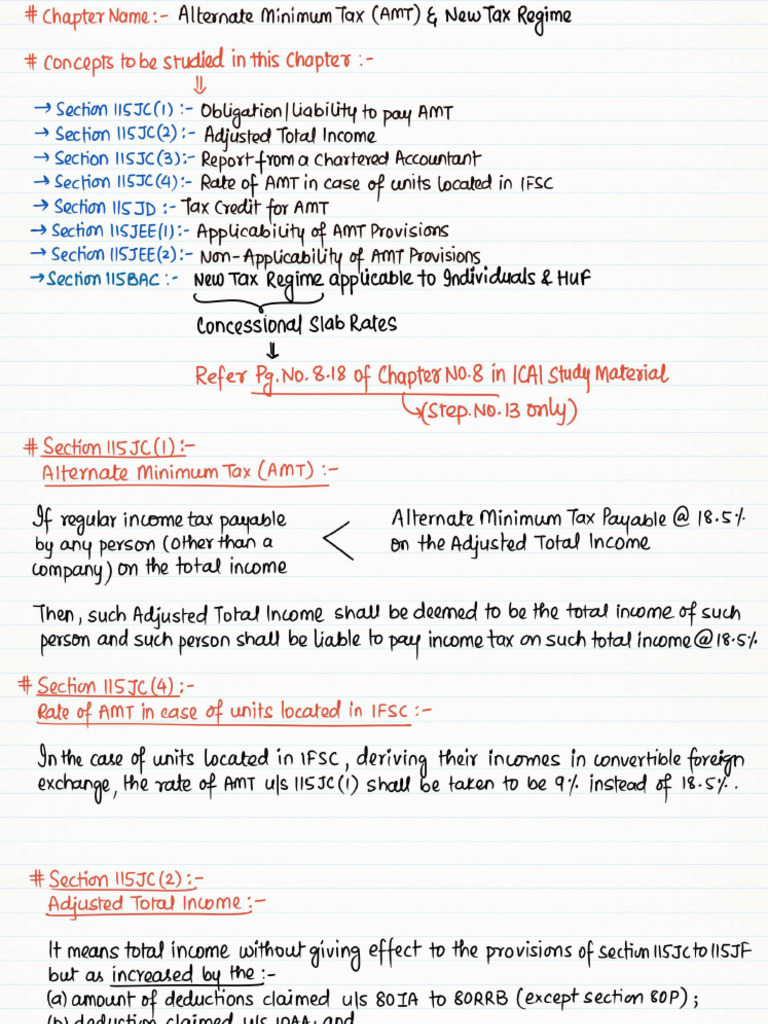 # Chapter Name:- Alternate Minimum Tax (AMT) & New Tax Regime
# Concepts to be studied in this Chapter :-
⇓
→ Section 115JC(1) :- Obligation/Liability to pay AMT
→ Section 115JC(2) :- Adjusted Total Income
→ Section 115JC(3):- Report from a Chartered Accountant
→ Section 115JC(4):- Rate of AMT in case of units located in IFSC
→ Section 115JD :- Tax Credit for AMT
→ Section 115JEE(1):- Applicability of AMT Provisions
→ Section 115JEE(2):- Non-Applicability of AMT Provisions
→ Section 115BAC :- New Tax Regime applicable to Individuals & HUF
Concessional Slab Rates
↓
Refer Pg.No. 8.18 of Chapter No.8 in ICAI Study Material
(Step.No. 13 only)
# Section 115JC(1):-
Alternate Minimum Tax (AMT) :-
If regular income tax payable < Alternate Minimum Tax Payable @ 18.5%
by any person (other than a on the Adjusted Total Income
company) on the total income
Then, such Adjusted Total Income shall be deemed to be the total income of such
person and such person shall be liable to pay income tax on such total income @18.5%
# Section 115JC(4):-
Rate of AMT in case of units located in IFSC:-
In the case of units located in IFSC, deriving their incomes in convertible foreign
exchange, the rate of AMT u/s 115JC(1) shall be taken to be 9% instead of 18.5%.
# Section 115JC(2):-
Adjusted Total Income:-
It means total income without giving effect to the provisions of section 115JC to 115JF
but as increased by the :-
(a) amount of deductions claimed u/s 80IA to 80RRB (except section 80P) ;
(b) deduction claimed u/s 10AA; and